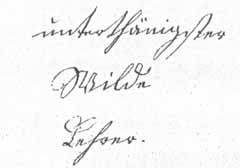 unterthänigster
Wilde
Lehrer.